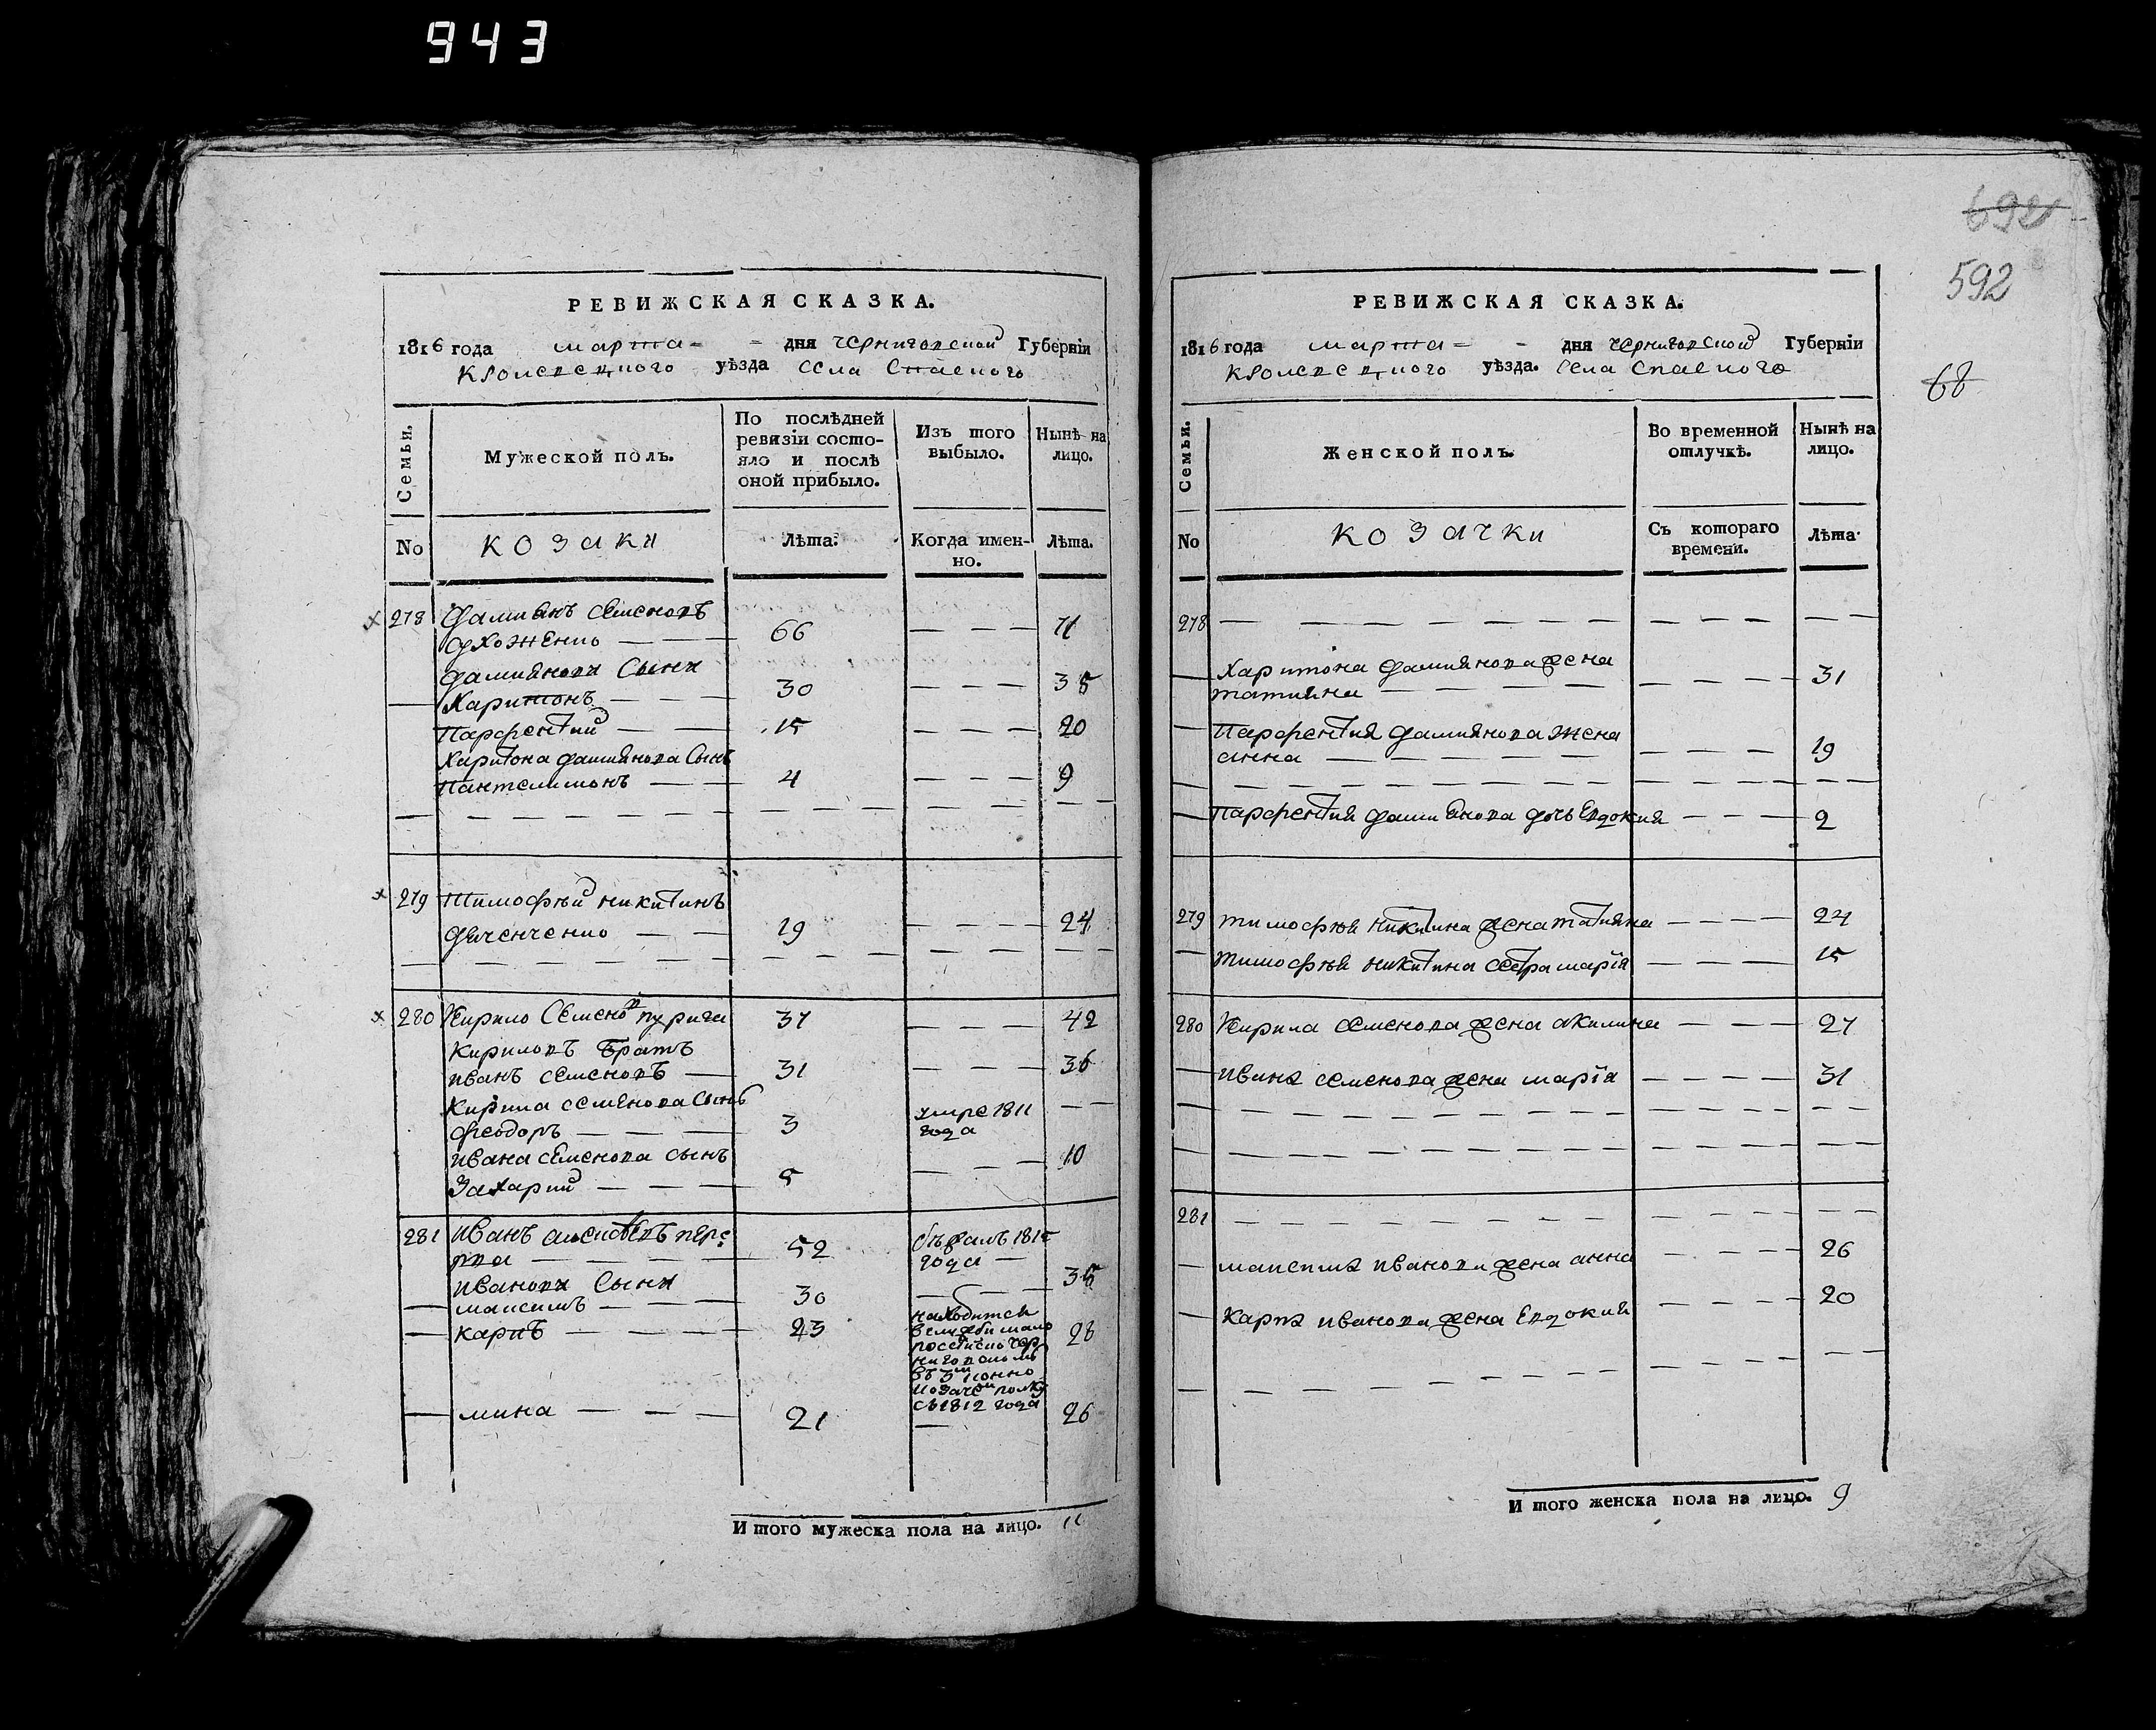 943
РЕВИЖСКАЯ СКАЗКА.
1816 года марта - - дня черниговской Губерніи
кролевецкого уѣзда села Спаского
Семьи.
Мужеской полъ.
По послѣдней ревизіи состояло и послѣ оной прибыло.
Изъ того выбыло.
Нынѣ на лицо.
No
козаки
Лѣта.
Когда именно.
Лѣта.
278 Дамиянъ Семеновъ
66 71
Дамиянови Сыни
Харитонъ 30 35
Парфентий 15 20
Харитона Дамиянова Сынъ
Пантелимонъ 4 9
279 Тимофѣй никитинъ
19 24
280 Кирило Семенов 37 42
Кириловъ братъ
иванъ семеновъ 31 36
Кирила семенова Сынъ
феодоръ 3 умре 1811 года
ивана семенова сынъ
Захарий 5 10
281 Иванъ
52 1815 года
иванови Сыни
максимъ 30 35
карпъ 23 находится
28
съ 1812 года
мина 21 26
И того мужеска пола на лицо. 11
692
592
68
РЕВИЖСКАЯ СКАЗКА.
1816 года марта - - дня черниговской Губерніи
кролевецкого уѣзда. села спаского
Семьи.
Женской полъ.
Во временной отлучкѣ.
Нынѣ на лицо.
No
козачки
Съ котораго времени.
Лѣта.
278
Харитона Дамиянова жена
татияна 31
Парфентия Дамиянова жена
анна 19
Парфентия Дамиянова дочь Евдокия 2
279 тимофѣя никитина жена татияна 24
тимофѣя никитина сестра марія 15
280 Кирила семенова жена акилина 27
ивана семенова жена марія 31
281
максима иванова жена анна 26
карпа иванова жена Евдокия 20
И того женска пола на лицо. 9